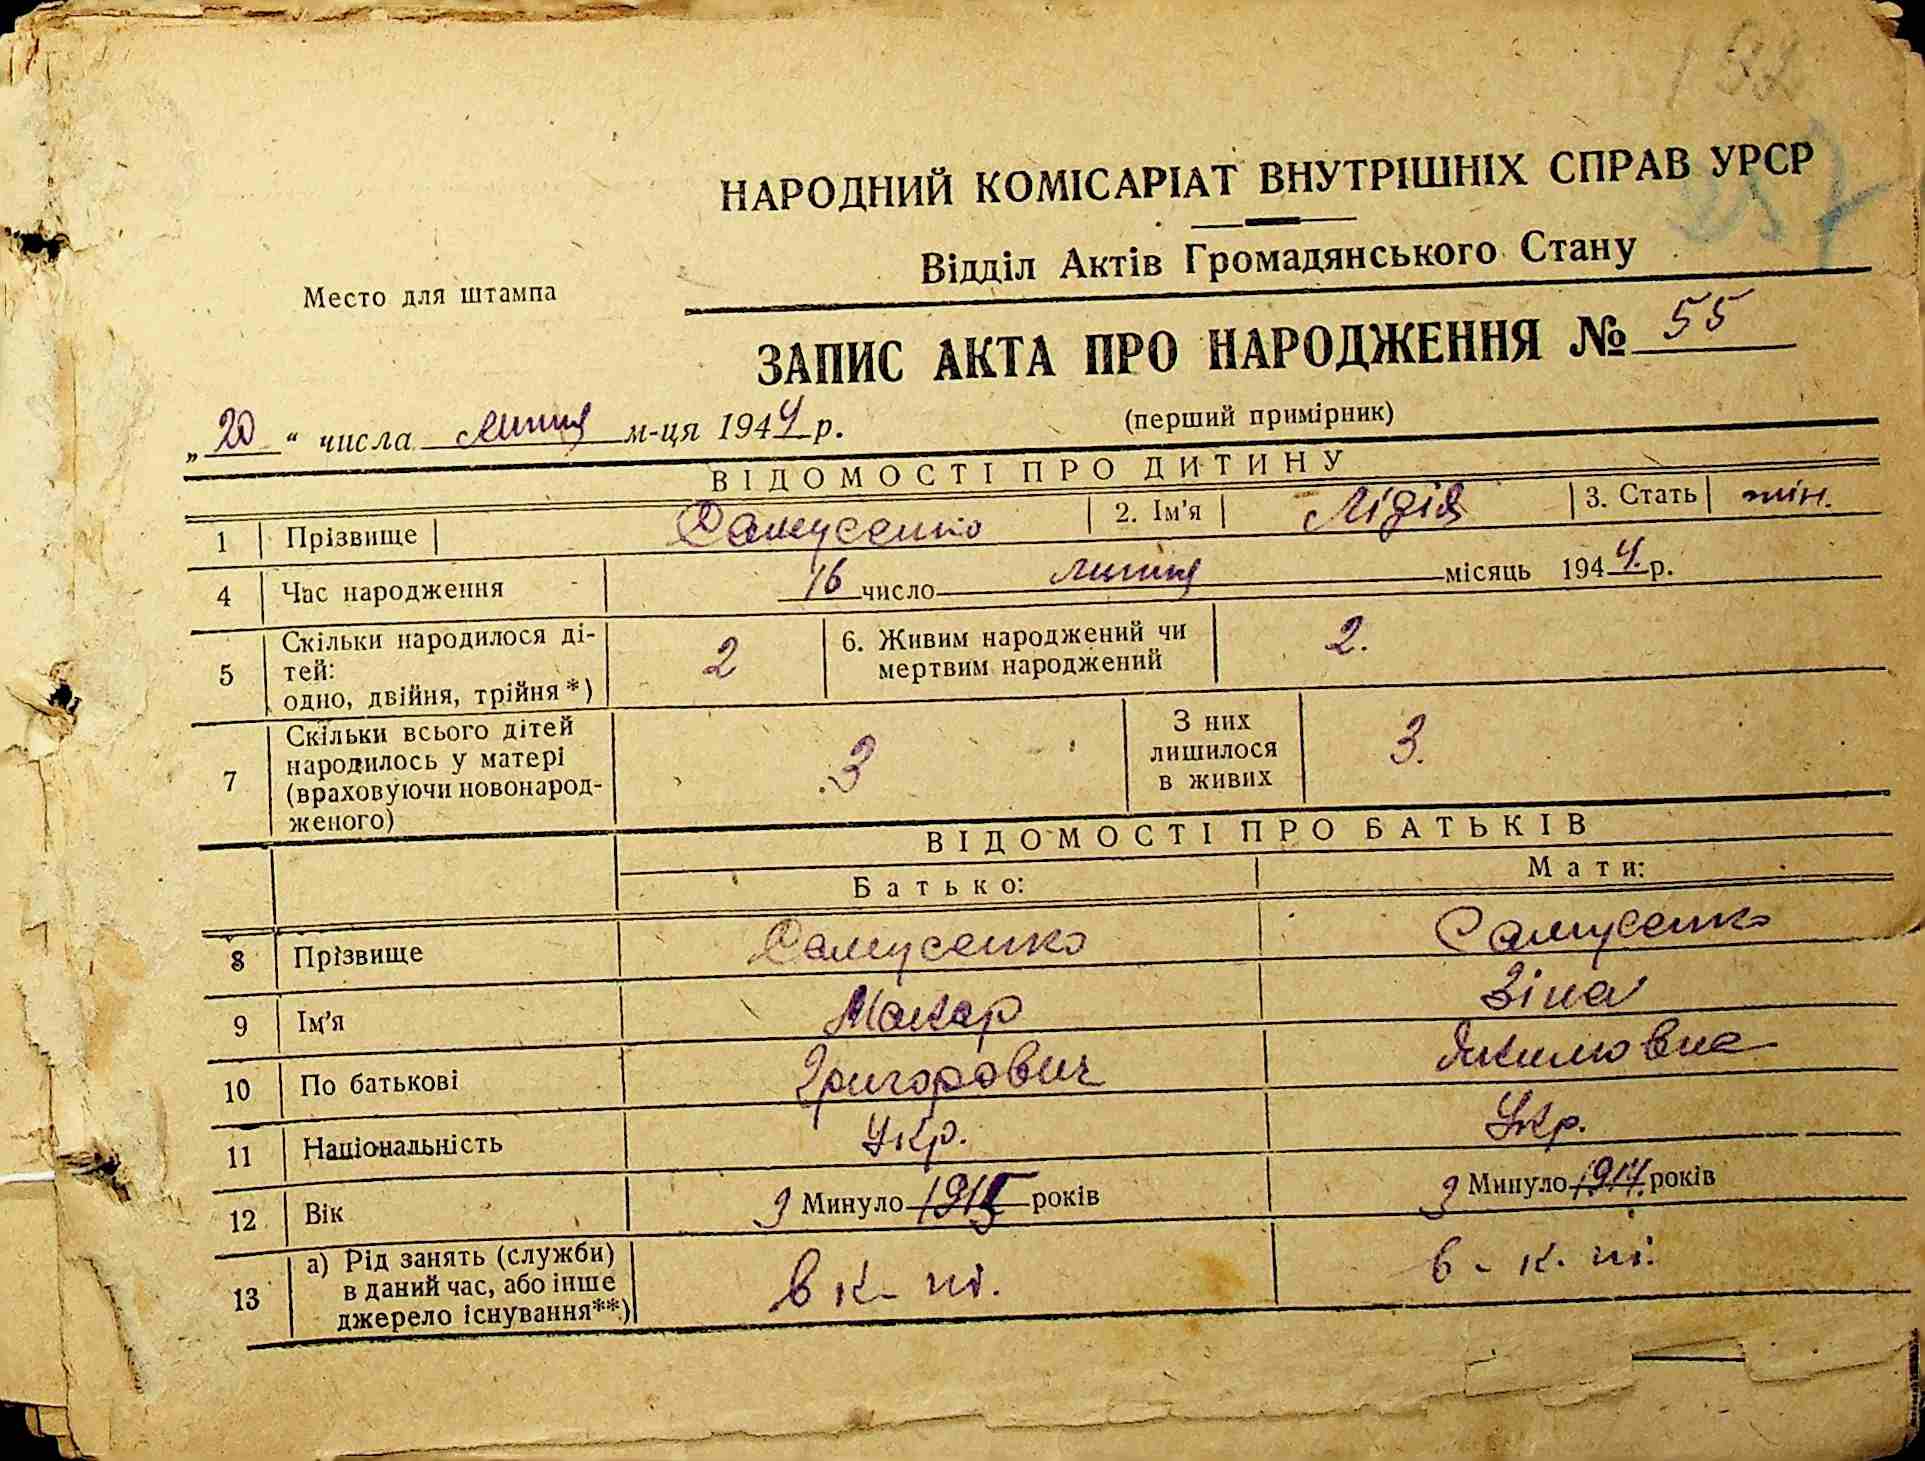 192
257
НАРОДНИЙ КОМІСАРІАТ ВНУТРІШНІХ СПРАВ УРСР
Відділ Актів Громадянського Стану
Место для штампа
ЗАПИС АКТА ПРО НАРОДЖЕННЯ № 55
„20“ числа липня м-ця 1944 р. (перший примірник)
ВІДОМОСТІ ПРО ДИТИНУ
1 Прізвище Самусенко 2. Ім'я Лідія 3. Стать жін.
4 Час народження 16 число липня місяць 1944. р.
5 Скільки народилося ді-
тей:
одно, двійня, трійня*) 2 6. Живим народжений чи
мертвим народжений 2.
7 Скільки всього дітей
народилось у матері
(враховуючи новонарод-
женого) 3 З них
лишилося
в живих 3.
ВІДОМОСТІ ПРО БАТЬКІВ
Батько: Мати:
8 Прізвище Самусенко Самусенко
9 Ім'я Макар Зіна
10 По батькові Григорович Якимовна
11 Національність Укр. Укр.
12 Вік З Минуло 1915 років З Минуло 1914. років
13 а) Рід занять (служби)
в даний час, або інше
джерело існування**) в к-пі. в-к. пі.